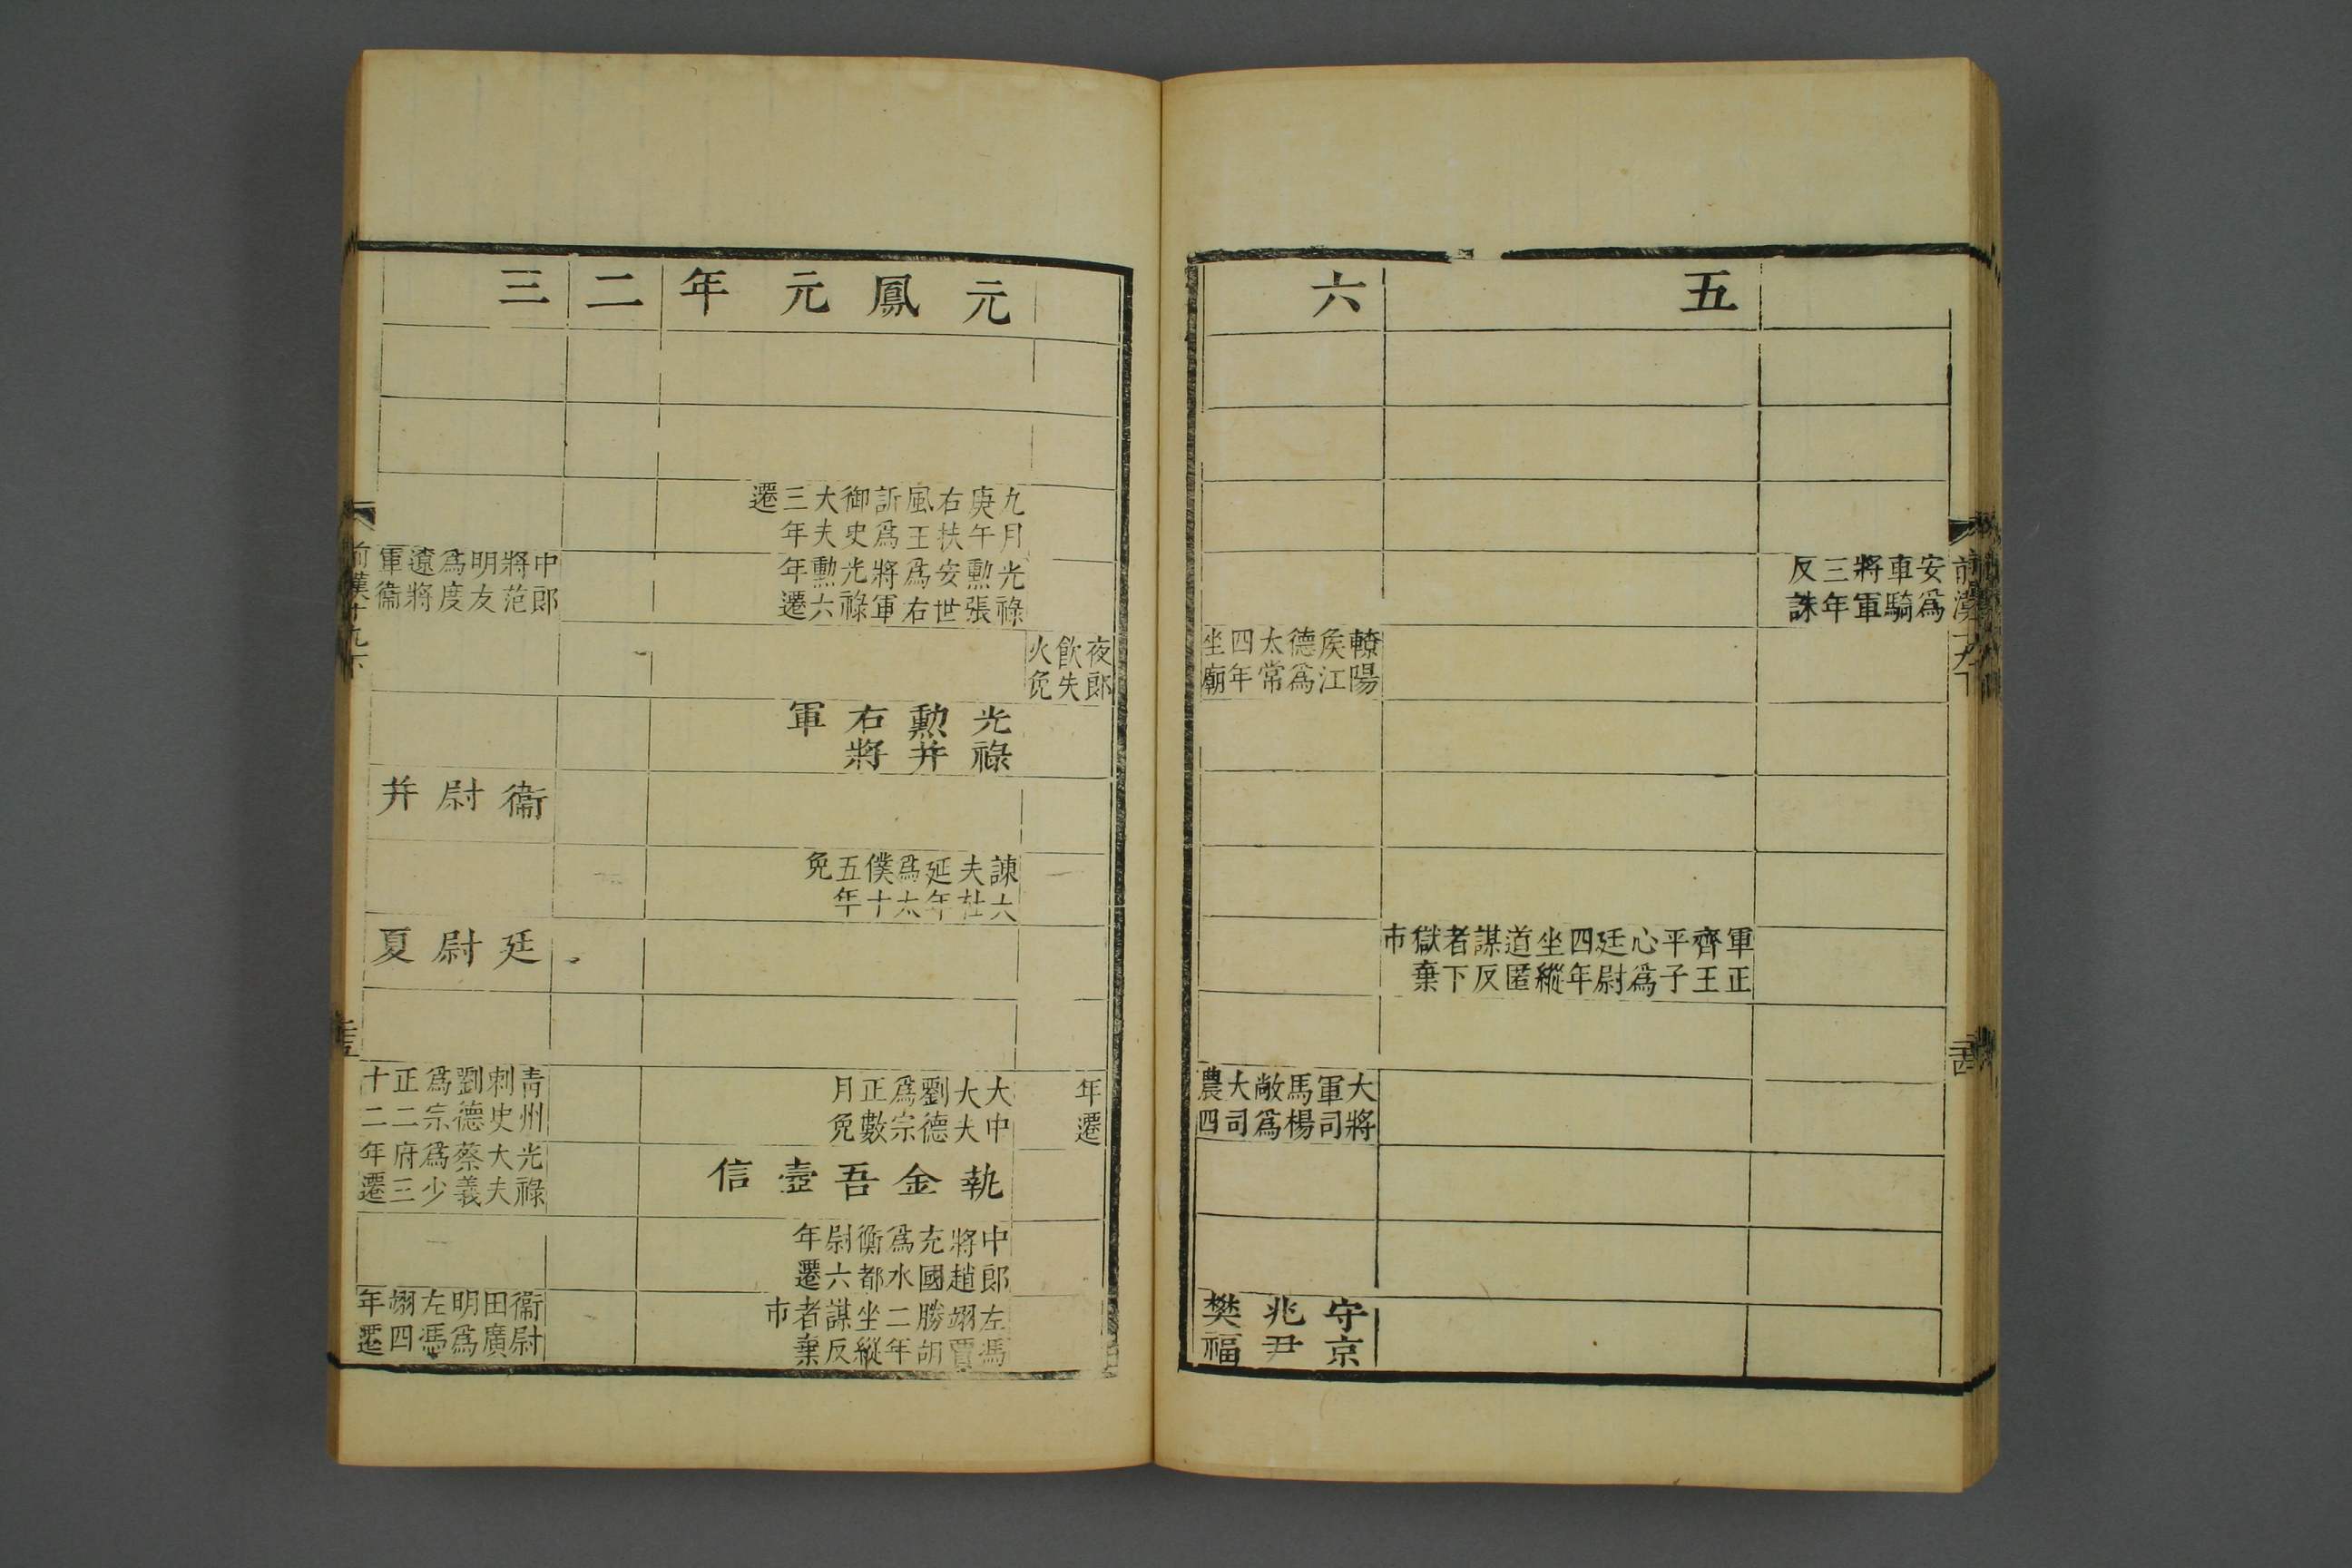 前漢十九下
安爲
車騎
將軍
三年
反誅
五
軍正
齊王
平子
心爲
廷尉
四年
坐縱
道匿
謀反
者下
獄棄
市
六
轑陽
侯江
德爲
太常
四年
坐廟
大將
軍司
馬楊
敞爲
大司
農四
守京
兆尹
樊福
夜郎
飲失
火免
年
遷
元鳳元年
九月
庚午
右扶
風王
訢爲
御史
大夫
三年
遷
光祿
勲張
安世
爲右
將軍
光祿
勲六
年遷
光祿
勲并
右將
軍
諫大
夫杜
延年
爲太
僕十
五年
免
大中
大夫
劉德
爲宗
正數
月免
執金吾壺信
中郎
將趙
充國
爲水
衡都
尉六
年遷
左馮
翊賈
勝胡
二年
坐縱
謀反
者棄
市
二
三
中郎
將范
明友
爲度
遼將
軍衞
衞尉并
廷尉夏
青州
刺史
劉德
爲宗
正二
十二
光祿
大夫
蔡義
爲少
府三
年遷
衞尉
田廣
明爲
左馮
翊四
年遷
前漢十九下